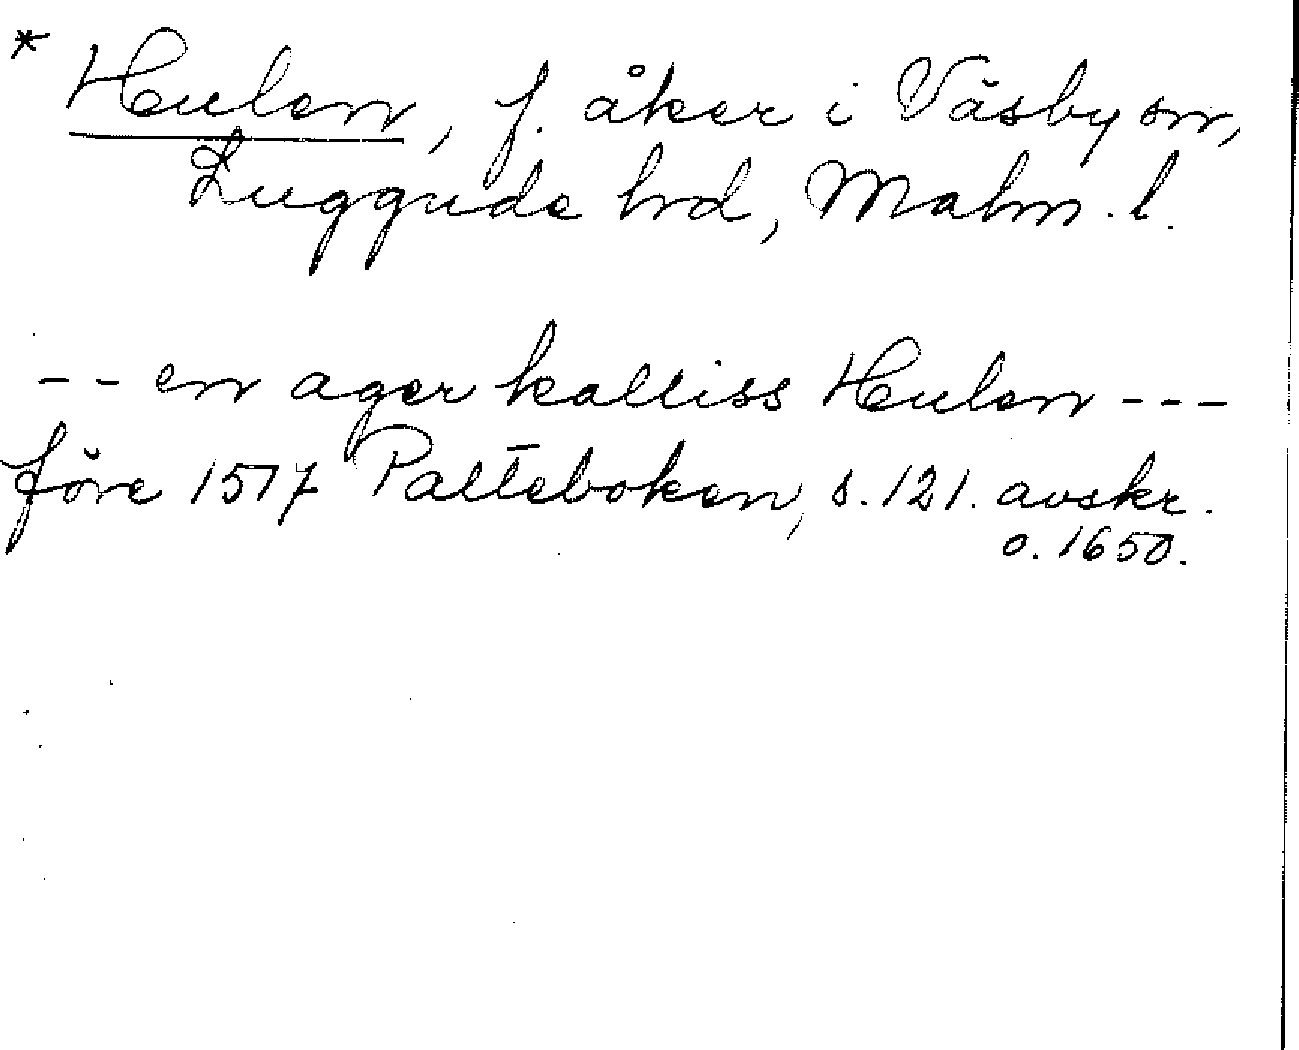 * Hculen, f. åker i Väsby sn,
Luggude hrd, Malm. l.
-- en ager kalliss Hculen ---
före 1517 Palteboken, s. 121. avskr.
o. 1650.